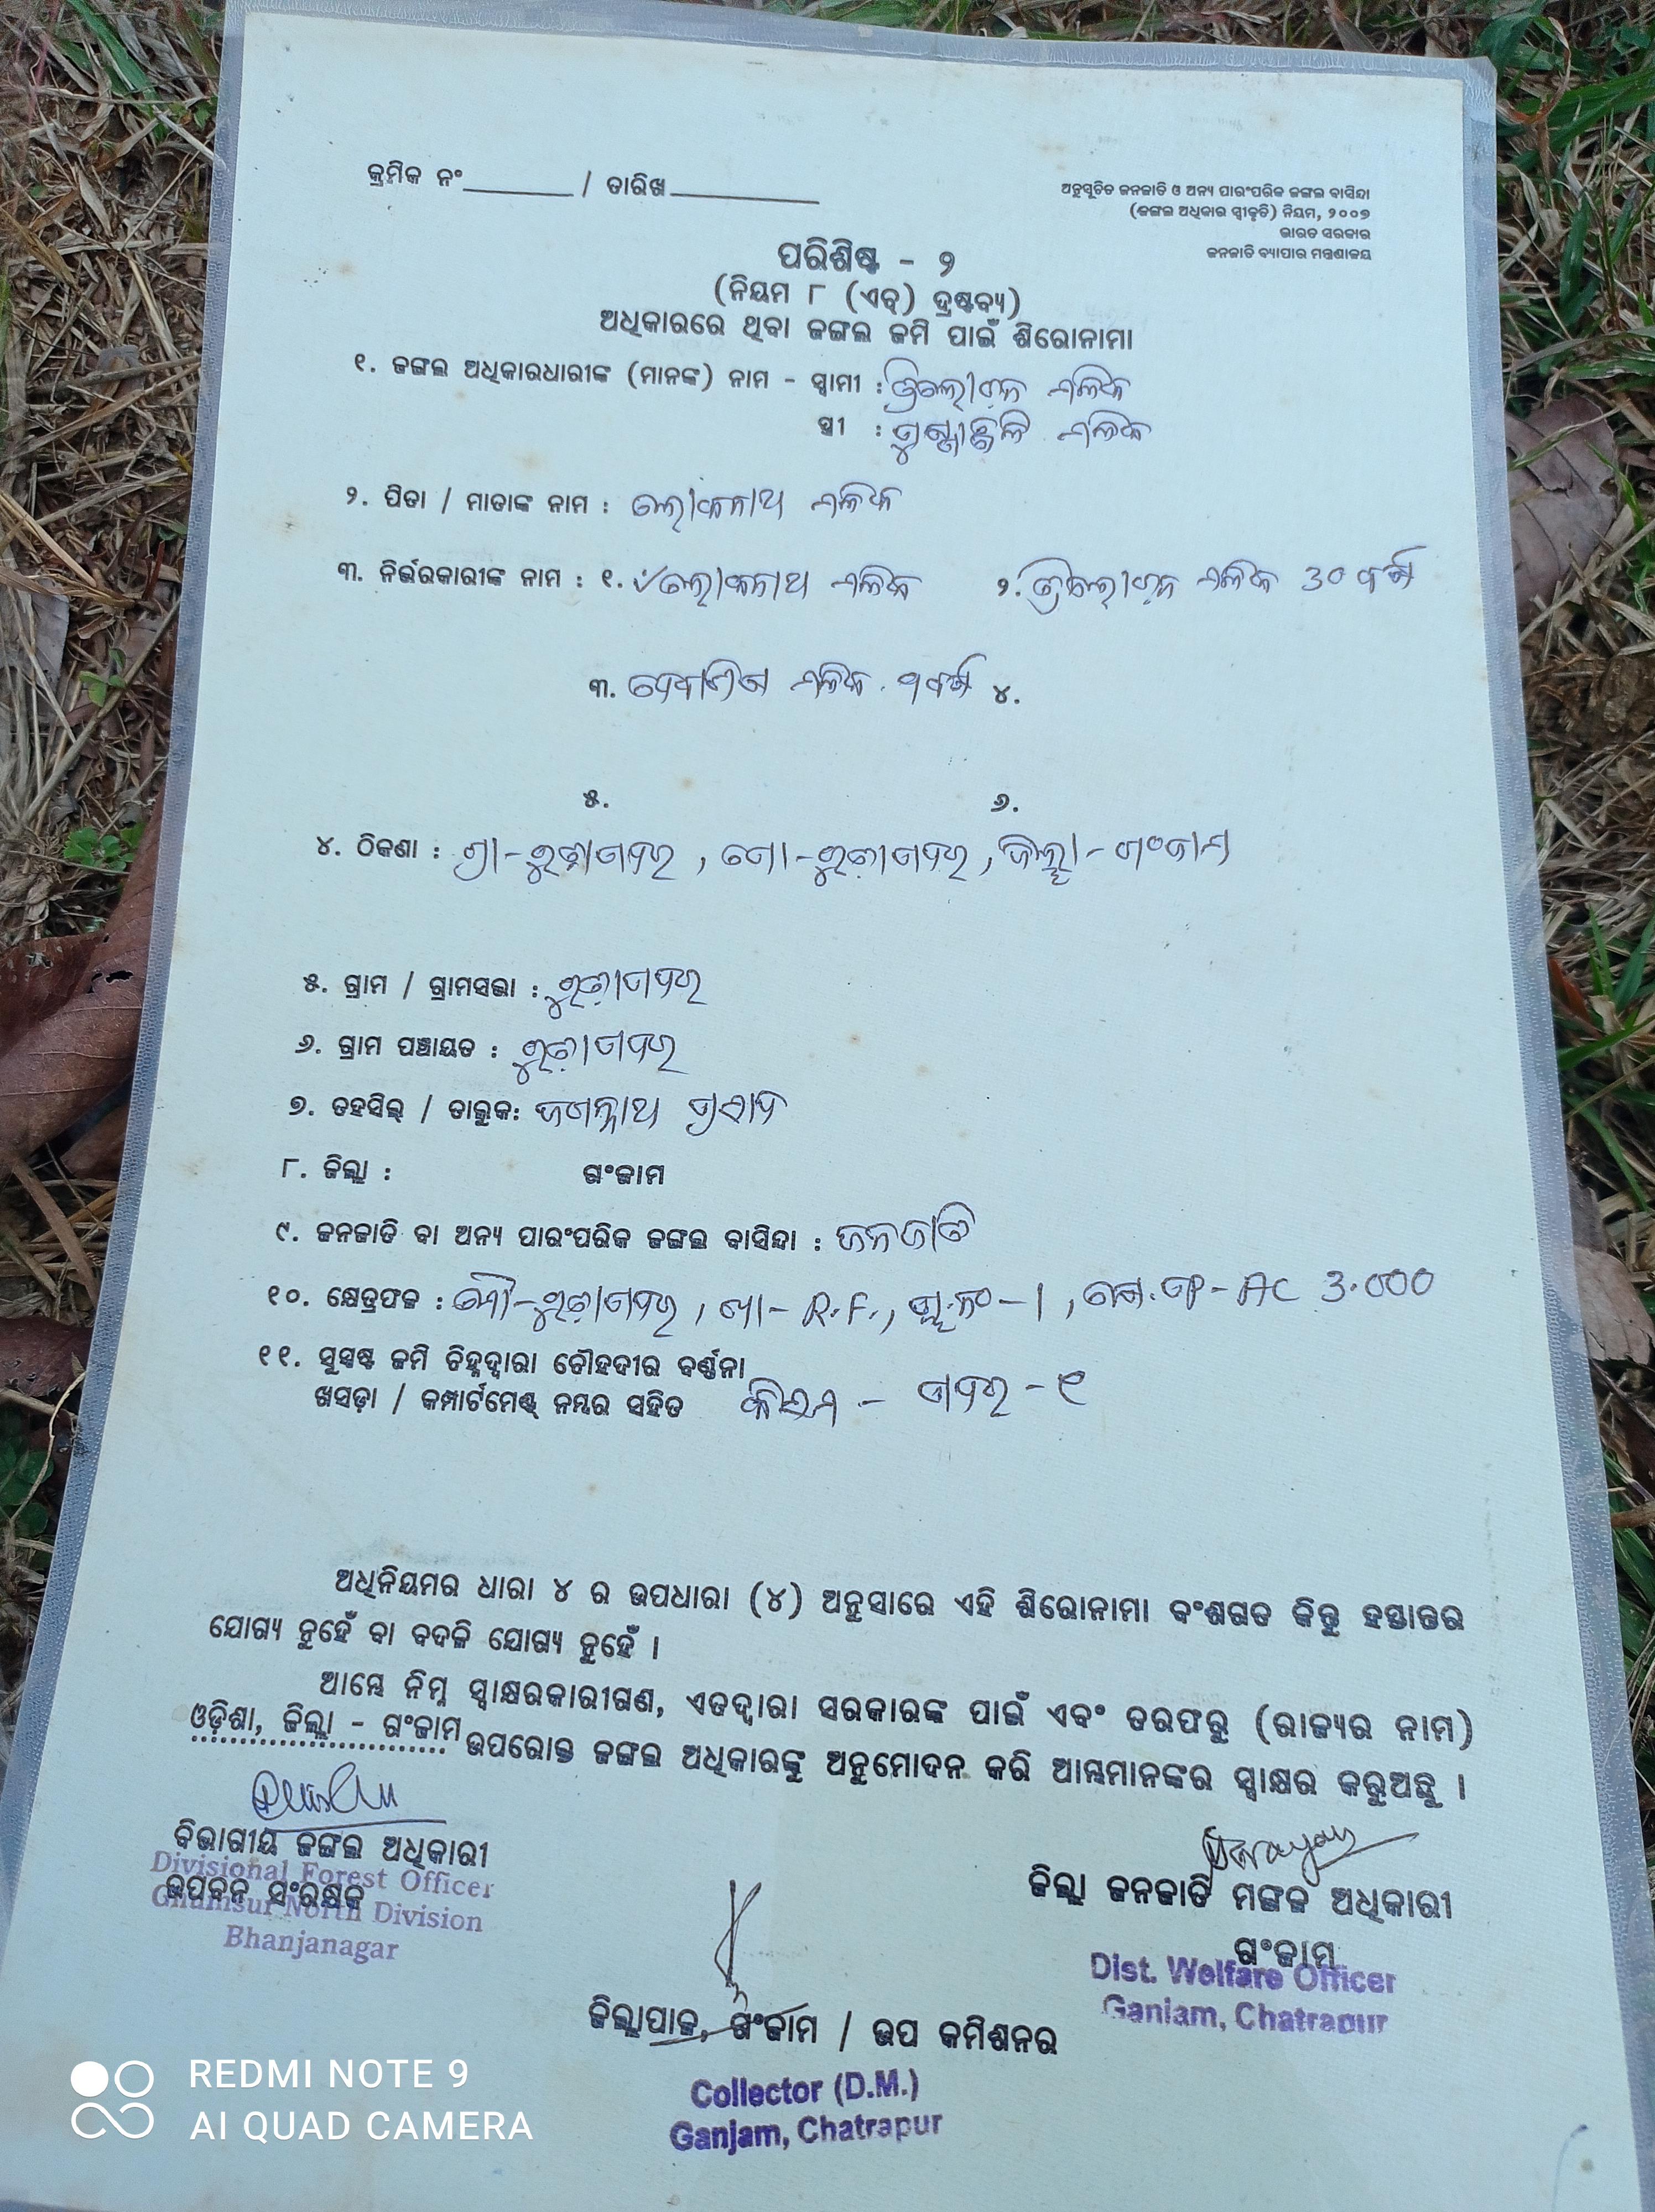 କ୍ରମିକ ନଂ________ / ତାରିଖ___________
ଅନୁସୂଚିତ ଜନଜାତି ଓ ଅନ୍ୟ ପାରଂପରିକ ଜଙ୍ଗଲ ବାସିନ୍ଦା
(ଜଙ୍ଗଲ ଅଧିକାର ସ୍ୱୀକୃତି) ନିୟମ, ୨୦୦୭
ଭାରତ ସରକାର
ଜନଜାତି ବ୍ୟାପାର ମନ୍ତ୍ରଣାଳୟ
ପରିଶିଷ୍ଟ - ୨
(ନିୟମ ୮ (ଏବ୍) ଦ୍ରଷ୍ଟବ୍ୟ)
ଅଧିକାରରେ ଥିବା ଜଙ୍ଗଲ ଜମି ପାଇଁ ଶିରୋନାମା
୧. ଜଙ୍ଗଲ ଅଧିକାରଧାରୀଙ୍କ (ମାନଙ୍କ) ନାମ - ସ୍ୱାମୀ : ତ୍ରିଲୋଚନ ମଲିକ
ସ୍ତ୍ରୀ : ମଲିକ
୨. ପିତା / ମାତାଙ୍କ ନାମ : ଲୋକନାଥ ମଲିକ
୩. ନିର୍ଭରକାରୀଙ୍କ ନାମ : ୧. ଲୋକନାଥ ମଲିକ ୨. ତ୍ରିଲୋଚନ ମଲିକ 30 ବର୍ଷ
୩. ମଲିକ ବର୍ଷ ୪.
୫. ୬.
୪. ଠିକଣା : ଗ୍ରା - , ପୋ - , ଜିଲ୍ଲା - ଗଂଜାମ
୫. ଗ୍ରାମ / ଗ୍ରାମସଭା :
୬. ଗ୍ରାମ ପଞ୍ଚାୟତ :
୭. ତହସିଲ୍ / ତାଲୁକ: ଜଗନ୍ନାଥ ପ୍ରସାଦ
୮. ଜିଲ୍ଲା : ଗଂଜାମ
୯. ଜନଜାତି ବା ଅନ୍ୟ ପାରଂପରିକ ଜଙ୍ଗଲ ବାସିନ୍ଦା : ଜନଜାତି
୧୦. କ୍ଷେତ୍ରଫଳ : ମୌ - , ଖା - R.F., ପ୍ଲ.ନଂ - 1, AC 3.000
୧୧. ସୁସ୍ପଷ୍ଟ ଜମି ଚିହ୍ନଦ୍ୱାରା ଚୌହଦୀର ବର୍ଣ୍ଣନା
ଖସଡ଼ା / କମ୍ପାର୍ଟମେଣ୍ଟ୍ ନମ୍ବର ସହିତ କିସମ -
ଅଧିନିୟମର ଧାରା ୪ ର ଉପଧାରା (୪) ଅନୁସାରେ ଏହି ଶିରୋନାମା ବଂଶଗତ କିନ୍ତୁ ହସ୍ତାନ୍ତର
ଯୋଗ୍ୟ ନୁହେଁ ବା ବଦଳି ଯୋଗ୍ୟ ନୁହେଁ ।
ଆମ୍ଭେ ନିମ୍ନ ସ୍ୱାକ୍ଷରକାରୀଗଣ, ଏତଦ୍ଦ୍ୱାରା ସରକାରଙ୍କ ପାଇଁ ଏବଂ ତରଫରୁ (ରାଜ୍ୟର ନାମ)
ଓଡ଼ିଶା, ଜିଲ୍ଲା - ଗଂଜାମ ଉପରୋକ୍ତ ଜଙ୍ଗଲ ଅଧିକାରଙ୍କୁ ଅନୁମୋଦନ କରି ଆମ୍ଭମାନଙ୍କର ସ୍ୱାକ୍ଷର କରୁଅଛୁ ।
ବିଭାଗୀୟ ଜଙ୍ଗଲ ଅଧିକାରୀ
Divisional Forest Officer
ଉପବନ ସଂରକ୍ଷକ
Ghumsur North Division
Bhanjanagar
ଜିଲ୍ଲା ଜନଜାତି ମଙ୍ଗଳ ଅଧିକାରୀ
ଗଂଜାମ
Dist. Welfare Officer
Ganjam, Chatrapur
ଜିଲ୍ଲାପାଳ, ଗଂଜାମ / ଉପ କମିଶନର
Collector (D.M.)
Ganjam, Chatrapur
REDMI NOTE 9
AI QUAD CAMERA